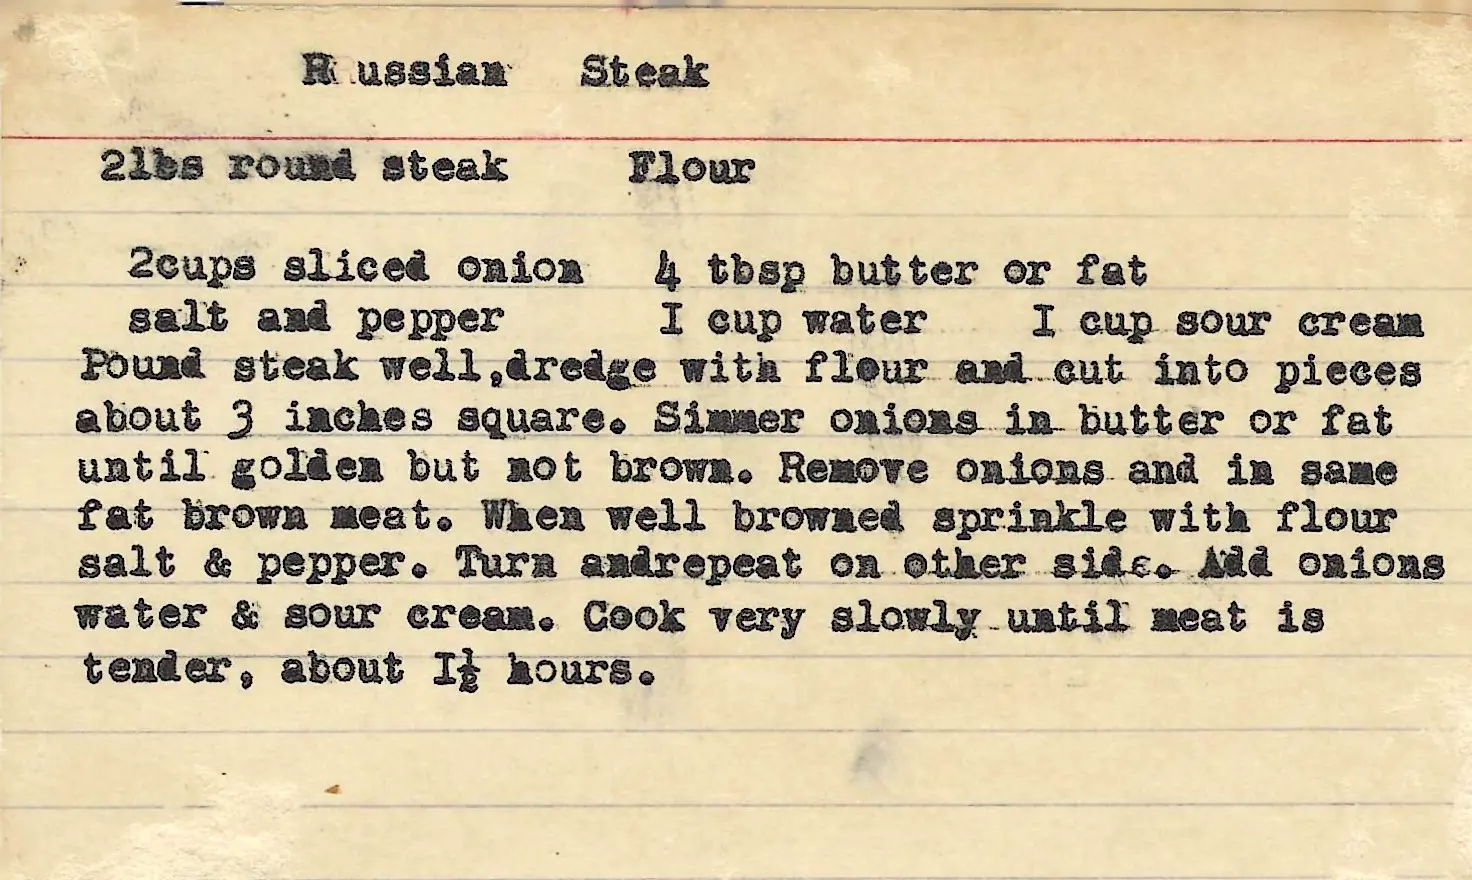 Russian Steak
2lbs round steak Flour
2cups sliced onion 4 tbsp butter or fat
salt and pepper I cup water I cup sour cream
Pound steak well,dredge with flour and cut into pieces
about 3 inches square. Simmer onions in butter or fat
until golden but not brown. Remove onions and in same
fat brown meat. When well browned sprinkle with flour
salt & pepper. Turn andrepeat on other side. Add onions
water & sour cream. Cook very slowly until meat is
tender, about I½ hours.